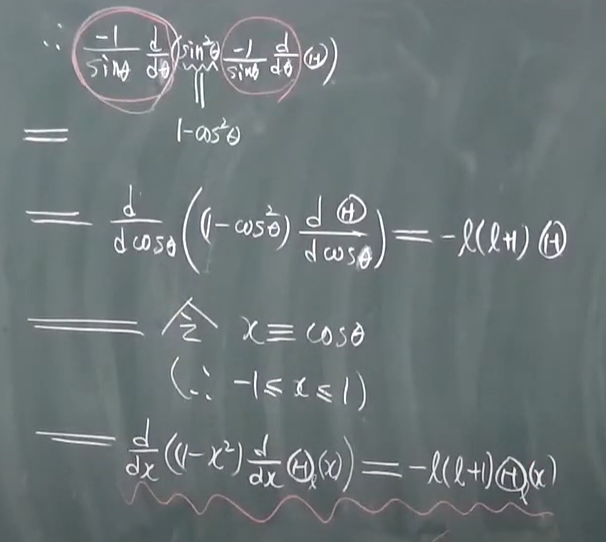 ∴ -1/sinθ d/dθ (sin²θ -1/sinθ d/dθ Θ)
= 1-cos²θ
= d/dcosθ ((1-cos²θ) dΘ/dcosθ) = -ℓ(ℓ+1) Θ
令 x ≡ cosθ
(∴ -1 ≤ x ≤ 1)
= d/dx ((1-x²) d/dx Θₗ(x)) = -ℓ(ℓ+1) Θₗ(x)